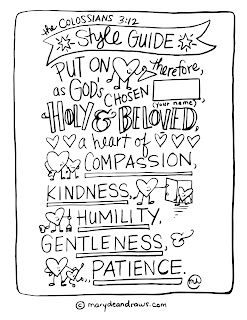 the COLOSSIANS 3:12
Style GUIDE
PUT ON therefore,
as GOD'S CHOSEN
(your name)
a HOLY & BELOVED,
a heart of
COMPASSION,
KINDNESS,
HUMILITY,
GENTLENESS, &
PATIENCE.
© marydeandraws.com